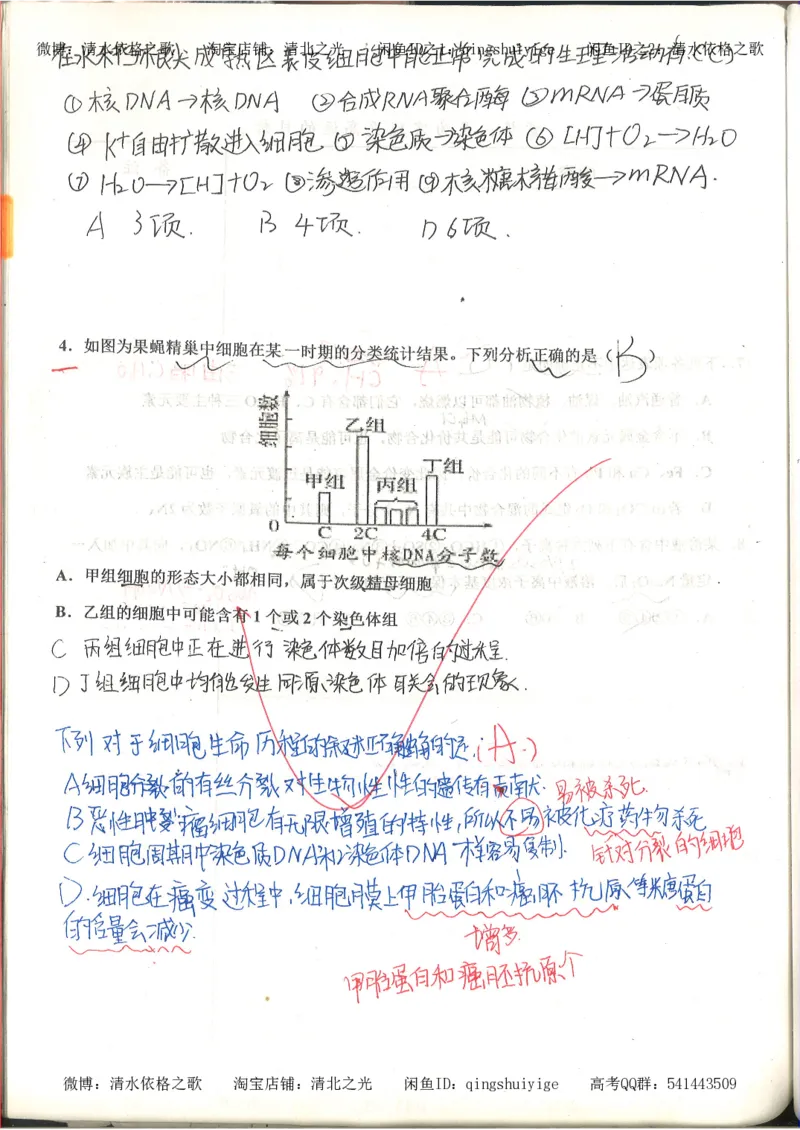 微博：清水依格之歌 淘宝店铺：清北之光 闲鱼ID之1：qingshuiyige 闲鱼ID之2：清水依格之歌
在水未仁根尖成熟区表皮细胞中能正常完成的生理活动有（C）
①核DNA→核DNA ②合成RNA聚合酶 ③mRNA→蛋白质
④K⁺自由扩散进入细胞 ⑤染色质→染色体 ⑥[H]+O₂→H₂O
⑦H₂O→[H]+O₂ ⑧渗透作用 ⑨核糖核苷酸→mRNA.
A 3项. B 4项. D 6项.
4．如图为果蝇精巢中细胞在某一时期的分类统计结果。下列分析正确的是（B）
细胞数
乙组
丁组
甲组 丙组
0 C 2C 4C
每个细胞中核DNA分子数
A．甲组细胞的形态大小都相同，属于次级精母细胞
B．乙组的细胞中可能含有1个或2个染色体组
C 丙组细胞中正在进行染色体数目加倍的过程.
D 丁组细胞中均能发生同源染色体联会的现象.
下列对于细胞生命历程的叙述正确的是（A.）
A细胞分裂的有丝分裂对生物性状的遗传有贡献. 易被杀死.
B恶性肿瘤细胞有无限增殖的特性,所以不易被化疗药物杀死
C细胞周期中染色质DNA和染色体DNA一样容易复制. 针对分裂的细胞
D.细胞在癌变过程中,细胞膜上甲胎蛋白和癌胚抗原等糖蛋白
的含量会减少. 增多.
甲胎蛋白和癌胚抗原个
微博：清水依格之歌 淘宝店铺：清北之光 闲鱼ID：qingshuiyige 高考QQ群：541443509